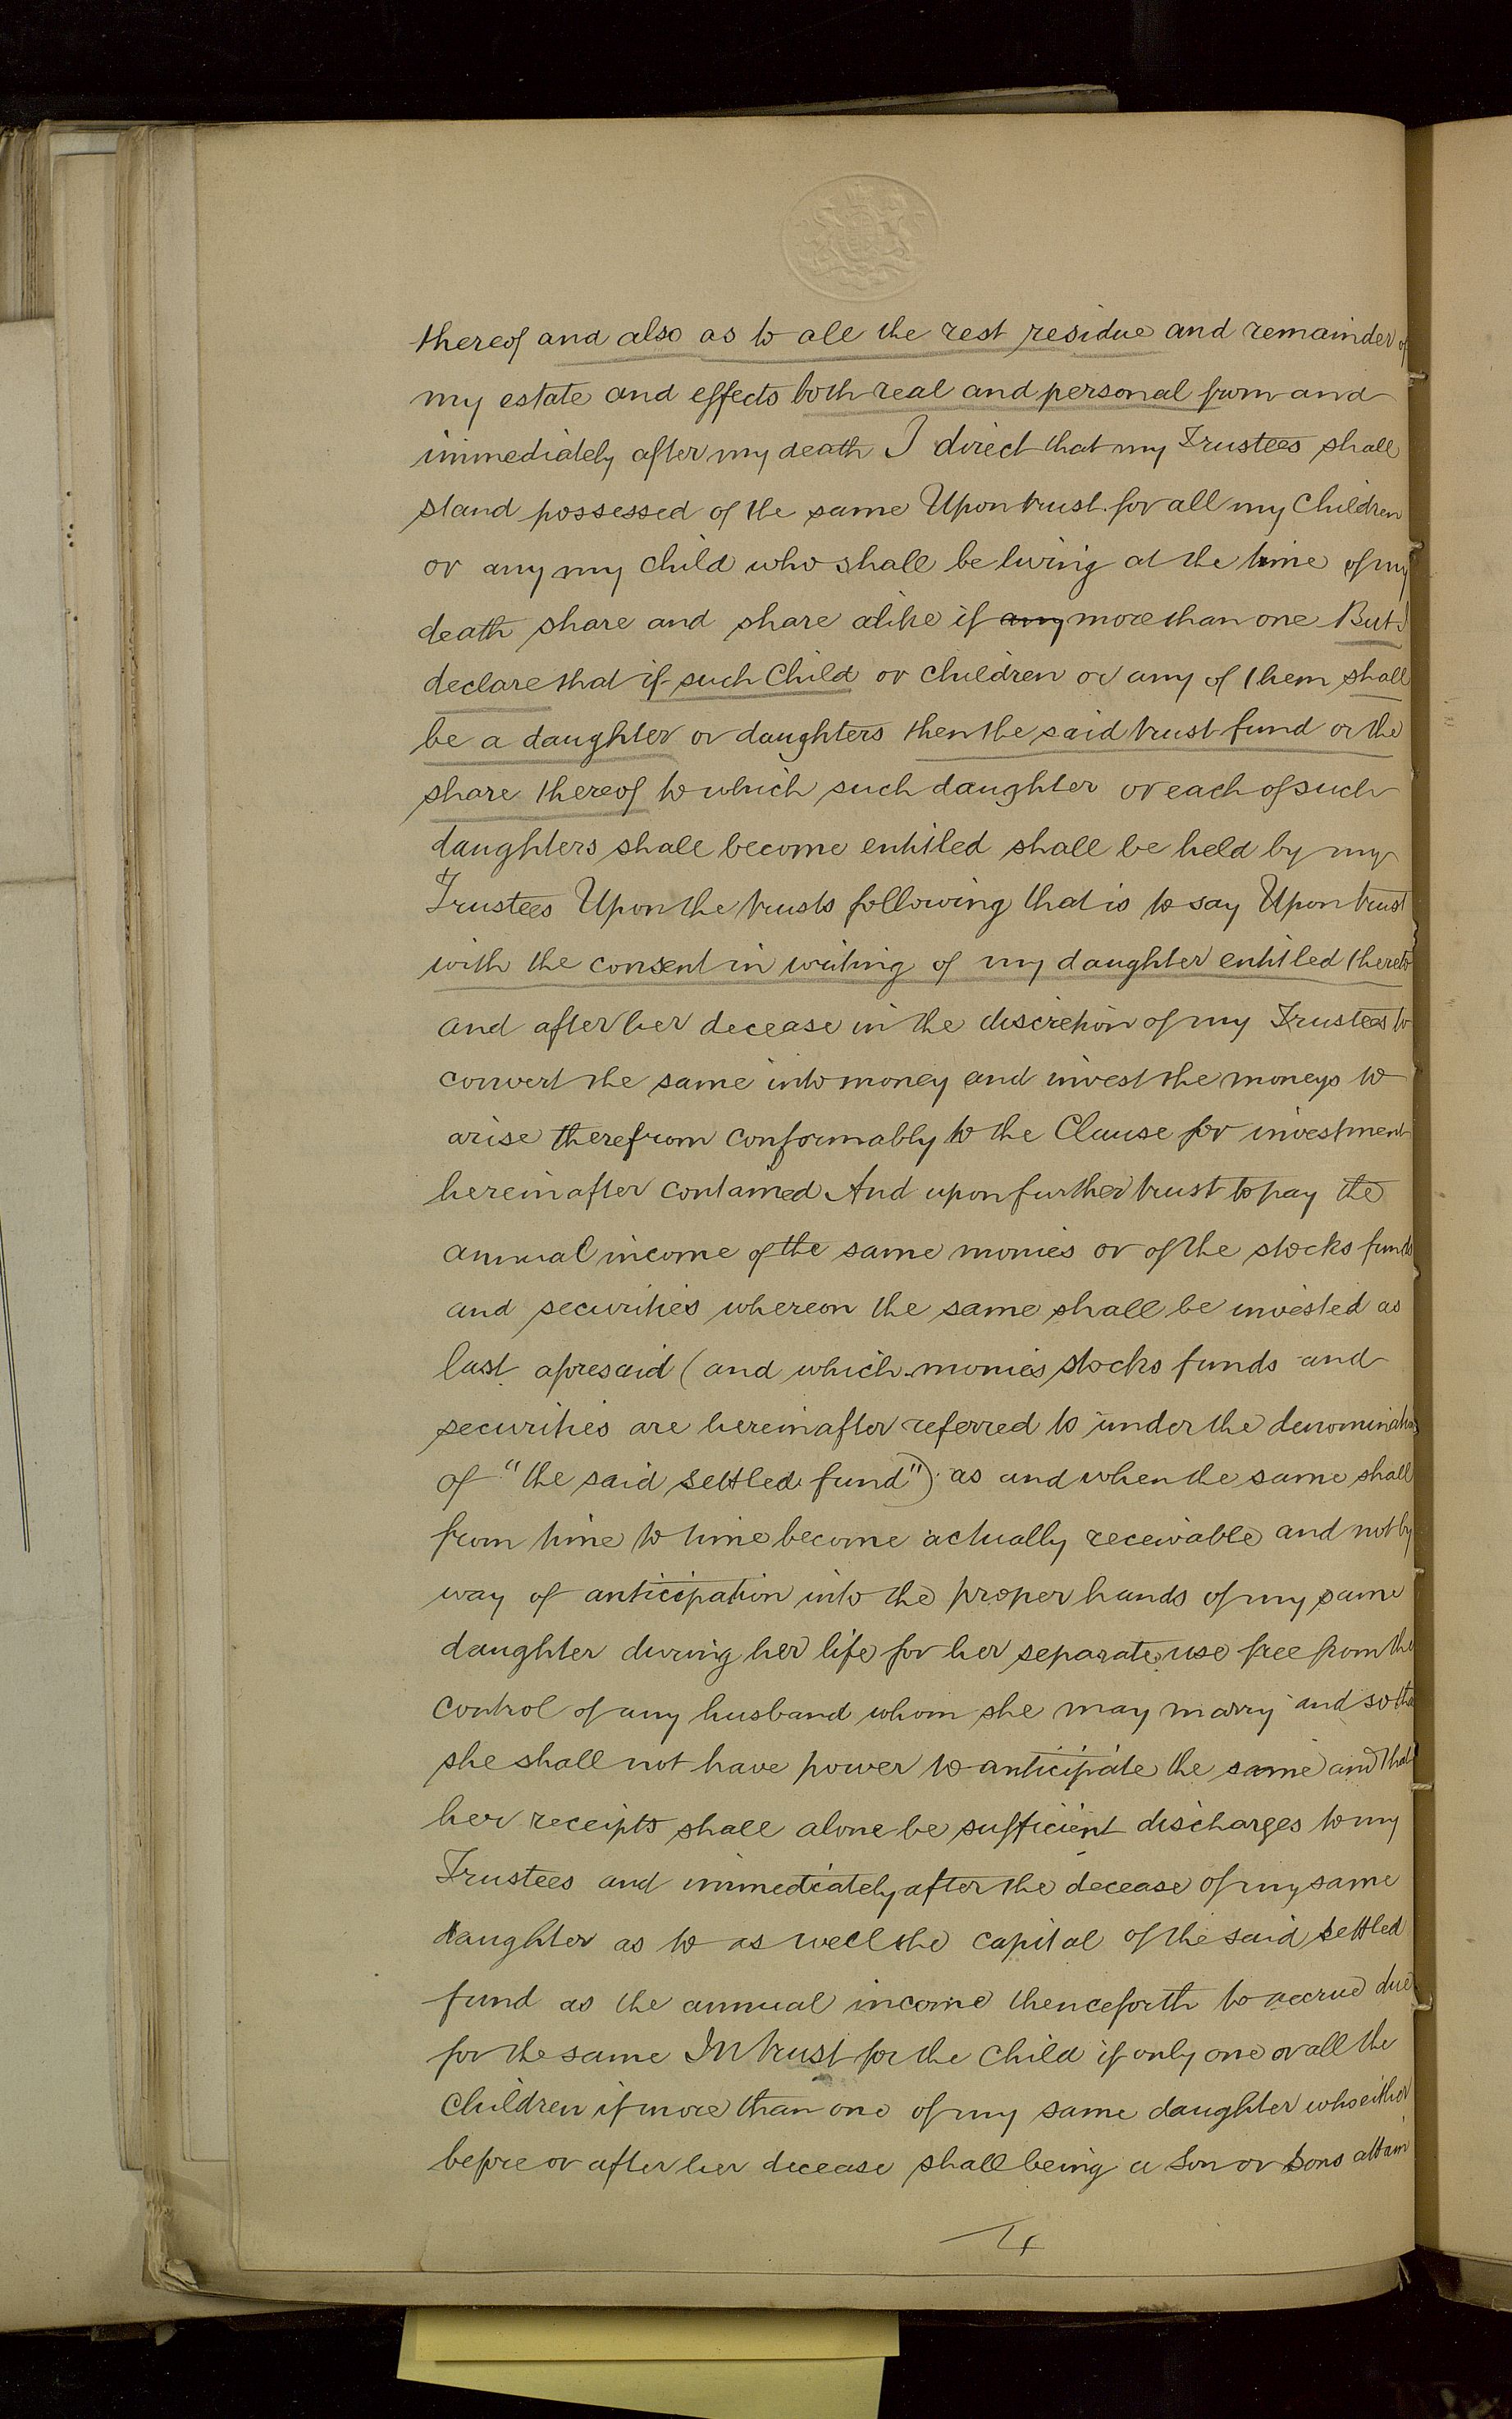 thereof and also as to all the rest residue and remainder of
my estate and effects both real and personal from and
immediately after my death I direct that my Trustees shall
stand possessed of the same Upon trust for all my Children
or any my child who shall be living at the time of my
death share and share alike if any more than one But I
declare that if such Child or children or any of them shall
be a daughter or daughters then the said trust fund or the
share thereof to which such daughter or each of such
daughters shall become entitled shall be held by my
Trustees Upon the trusts following that is to say Upon trust
with the consent in writing of my daughter entitled thereto
and after her decease in the discretion of my Trustees to
convert the same into money and invest the moneys to
arise therefrom conformably to the Clause for investment
hereinafter contained And upon further trust to pay the
annual income of the same monies or of the stocks funds
and securities whereon the same shall be invested as
last aforesaid (and which monies stocks funds and
securities are hereinafter referred to under the denomination
of "the said settled fund") as and when the same shall
from time to time become actually receivable and not by
way of anticipation into the proper hands of my same
daughter during her life for her separate use free from the
control of any husband whom she may marry and so that
she shall not have power to anticipate the same and that
her receipts shall alone be sufficient discharges to my
Trustees and immediately after the decease of my same
daughter as to as well the capital of the said settled
fund as the annual income thenceforth to accrue due
for the same In trust for the child if only one or all the
children if more than one of my same daughter who either
before or after her decease shall being a son or sons attain